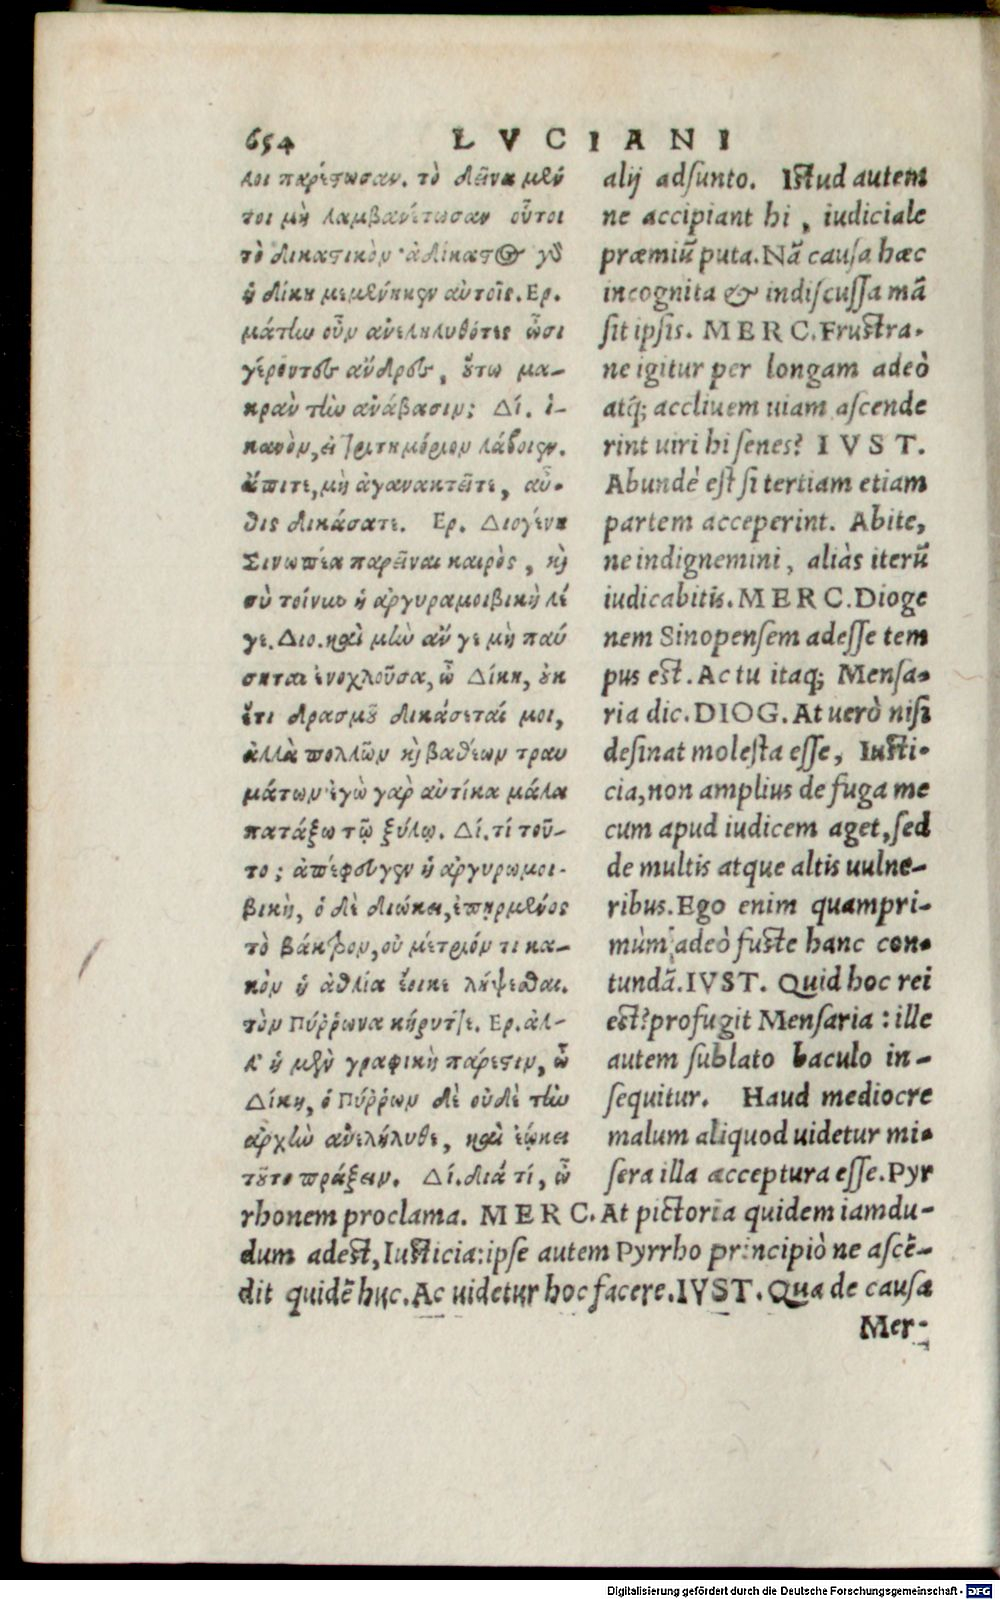 654 LVCIANI
λοι παρέστωσαν. τὸ δεῖνα μέν
τοι μὴ λαμβανέτωσαν οὗτοι
τὸ δικαστικὸν· ἀδίκαστος γὰρ
ἡ δίκη μεμένηκεν αὐτοῖς. Ερ.
μάτην οὖν ἀνεληλυθότες ὦσι
γέροντες ἄνδρες, οὕτω μα-
κρὰν τὴν ἀνάβασιν; Δί. ἱ-
κανὸν, εἰ τριτημόριον λάβοιεν.
ἄπιτε, μὴ ἀγανακτεῖτε, αὖ-
θις δικάσατε. Ερ. Διογένη
Σινωπέα παρεῖναι καιρὸς, καὶ
σὺ τοίνυν ἡ ἀργυραμοιβικὴ λέ
γε. Διο. καὶ μὴν ἄν γε μὴ παύ
σηται ἐνοχλοῦσα, ὦ Δίκη, οὐκ
ἔτι δρασμοῦ δικάσεταί μοι,
ἀλλὰ πολλῶν καὶ βαθέων τραυ
μάτων· ἐγὼ γὰρ αὐτίκα μάλα
πατάξω τῷ ξύλῳ. Δί. τί τοῦ-
το; ἀπέφευγεν ἡ ἀργυρωμοι-
βικὴ, ὁ δὲ διώκει, ἐπηρμένος
τὸ βάκτρον, οὐ μέτριόν τι κα-
κὸν ἡ ἀθλία ἔοικε λήψεσθαι.
τὸν Πύῤῥωνα κήρυττε. Ερ. ἀλ-
λ' ἡ μὲν γραφικὴ πάρεστιν, ὦ
Δίκη, ὁ Πύῤῥων δὲ οὐδὲ τὴν
ἀρχὴν ἀνελήλυθε, καὶ ἐῴκει
τοῦτο πράξειν. Δί. διά τί, ὦ
alij adsunto. Istud autem
ne accipiant hi, iudiciale
præmiũ puta. Nã causa hæc
incognita & indiscussa mã
sit ipsis. MERC. Frustra-
ne igitur per longam adeò
atq; accliuem uiam ascende
rint uiri hi senes? IVST.
Abundè est si tertiam etiam
partem acceperint. Abite,
ne indignemini, aliàs iterũ
iudicabitis. MERC. Dioge
nem Sinopensem adesse tem
pus est. Ac tu itaq; Mensa-
ria dic. DIOG. At uerò nisi
desinat molesta esse, Iusti-
cia, non amplius de fuga me
cum apud iudicem aget, sed
de multis atque altis uulne-
ribus. Ego enim quampri-
mùm adeò fuste hanc con-
tundã. IVST. Quid hoc rei
est? profugit Mensaria: ille
autem sublato baculo in-
sequitur. Haud mediocre
malum aliquod uidetur mi-
sera illa acceptura esse. Pyr
rhonem proclama. MERC. At pictoria quidem iamdu-
dum adest, Iusticia: ipse autem Pyrrho principiò ne ascẽ-
dit quidẽ huc. Ac uidetur hoc facere. IVST. Qua de causa
Mer-
Digitalisierung gefördert durch die Deutsche Forschungsgemeinschaft - DFG